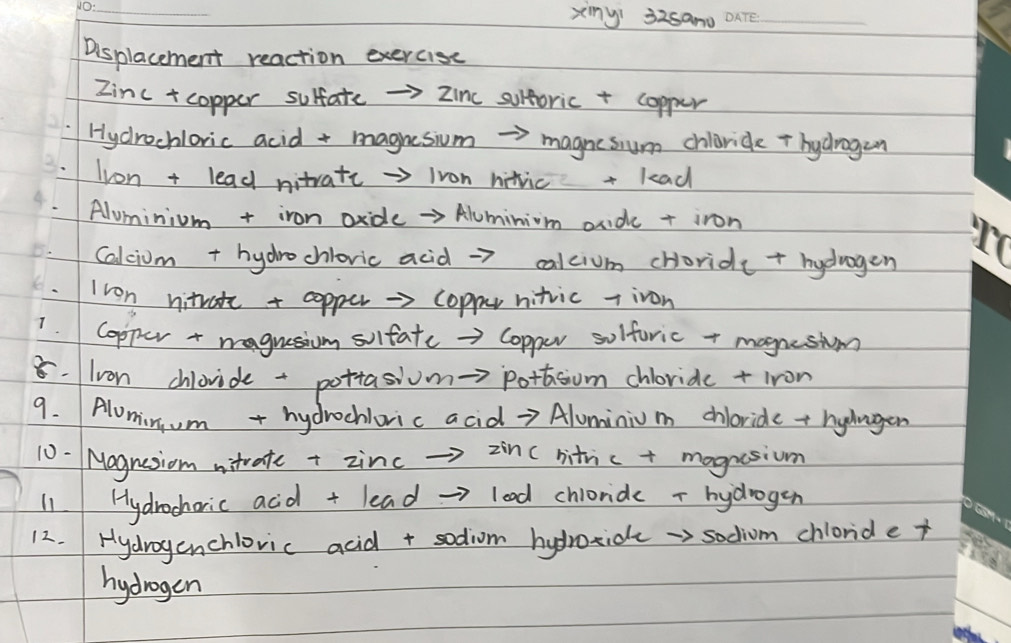 NO:
xinyi 325ano DATE:
Displacement reaction exercise
Zinc + copper sulfate → zinc sulforic + copper
2. Hydrochloric acid + magnesium → magnesium chloride + hydrogen
3. Iron + lead nitrate → Iron nitric + lead
4. Aluminium + iron oxide → Aluminium oxide + iron
5. Calcium + hydrochloric acid → calcium chloride + hydrogen
6. Iron nitrate + copper → copper nitric + iron
7. Copper + magnesium sulfate → Copper sulfuric + magnesium
8- Iron chloride + pottasium → Pottasium chloride + iron
9- Aluminium + hydrochloric acid → Aluminium chloride + hydrogen
10- Magnesium nitrate + zinc → zinc nitric + magnesium
11. Hydrochoric acid + lead → lead chloride + hydrogen
12- Hydrogenchloric acid + sodium hydroxide → sodium chloride +
hydrogen